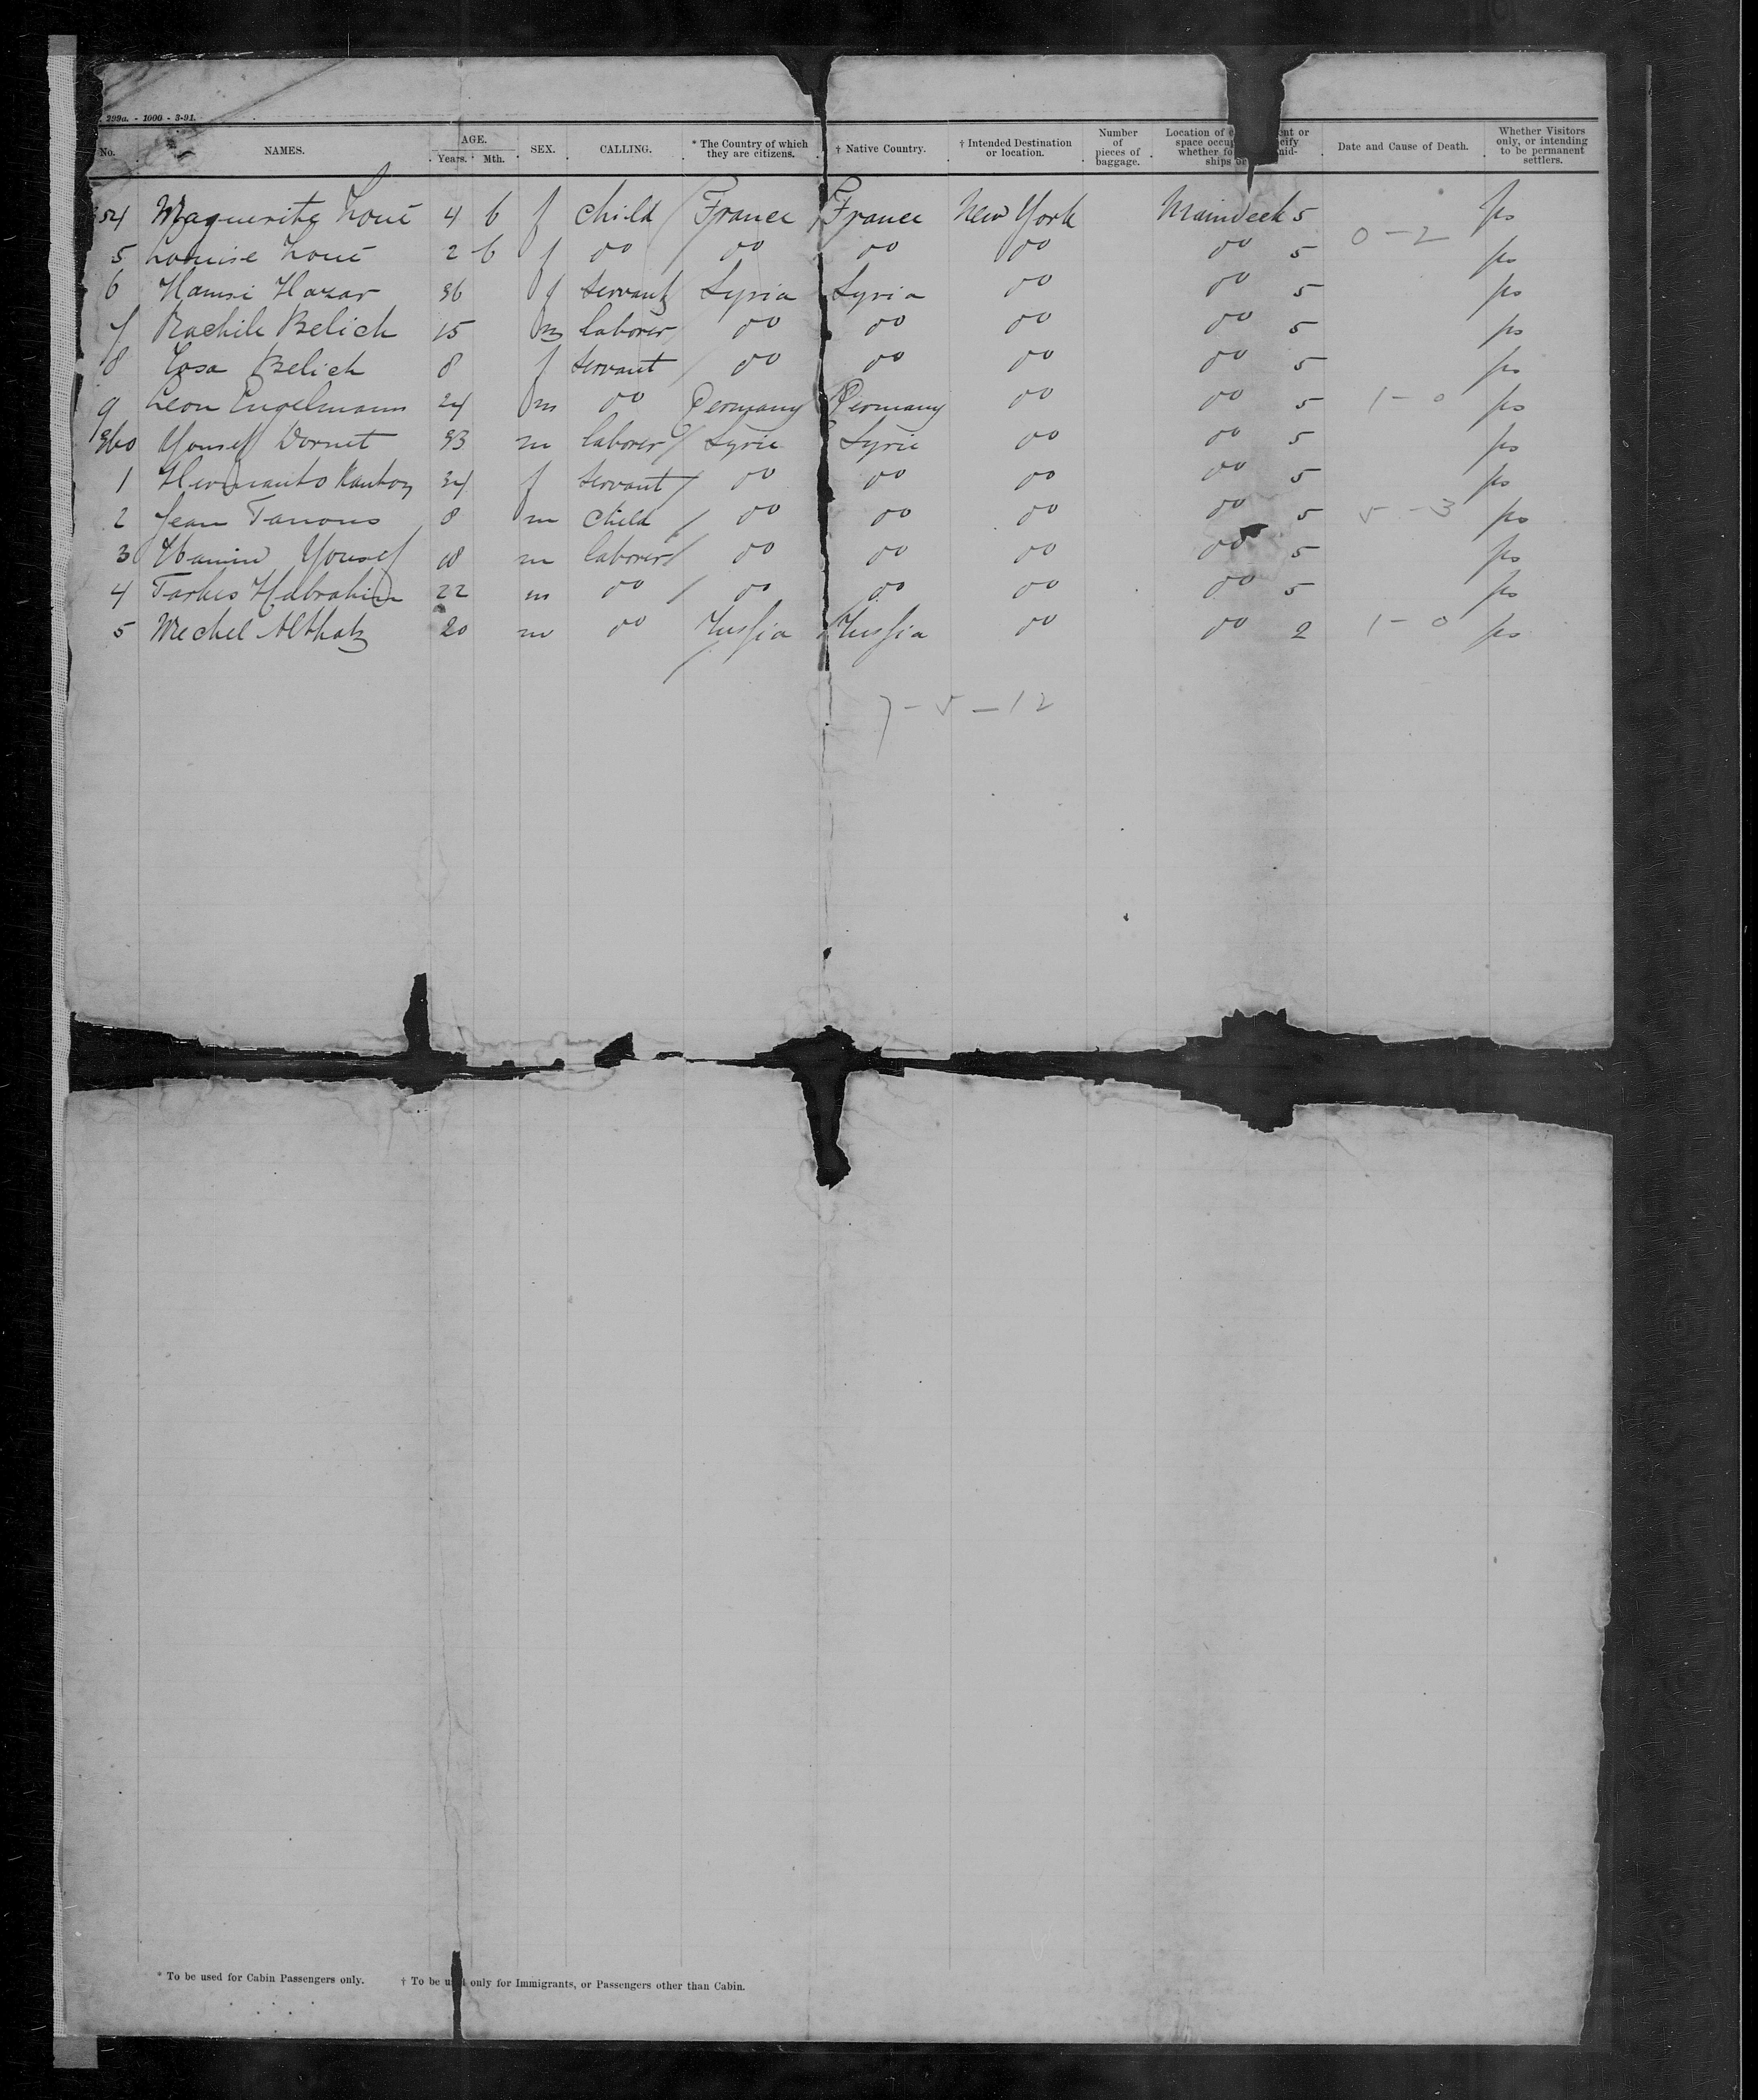 299a. - 1000 - 3-91.
No. NAMES. AGE. Years. Mth. SEX. CALLING. * The Country of which they are citizens. † Native Country. † Intended Destination or location. Number of pieces of baggage. Location of space whether ships Date and Cause of Death. Whether Visitors only, or intending to be permanent settlers.
54 Maguerite Loué 4 6 f child France France New York Maindeck 5 ps
5 Louise Loué 2 6 f do do do do do 5 0-2 ps
6 Hamsi Hazar 36 f servant Syria Syria do do 5 ps
7 Rachile Belich 15 m laborer do do do do 5 ps
8 Rosa Belich 8 f servant do do do do 5 ps
9 Leon Engelmann 24 m do Germany Germany do do 5 1-0 ps
360 Yousef Dornet 33 m laborer Syrie Syrie do do 5 ps
1 34 f servant do do do do 5 ps
2 Jean Tanous 8 m child do do do do 5 5-3 ps
3 Yousef 18 m laborer do do do do 5 ps
4 Tarkes Habrahim 22 m do do do do do 5 ps
5 Mechel 20 m do Russia Russia do do 2 1-0 ps
7-5-12
* To be used for Cabin Passengers only. † To be used only for Immigrants, or Passengers other than Cabin.